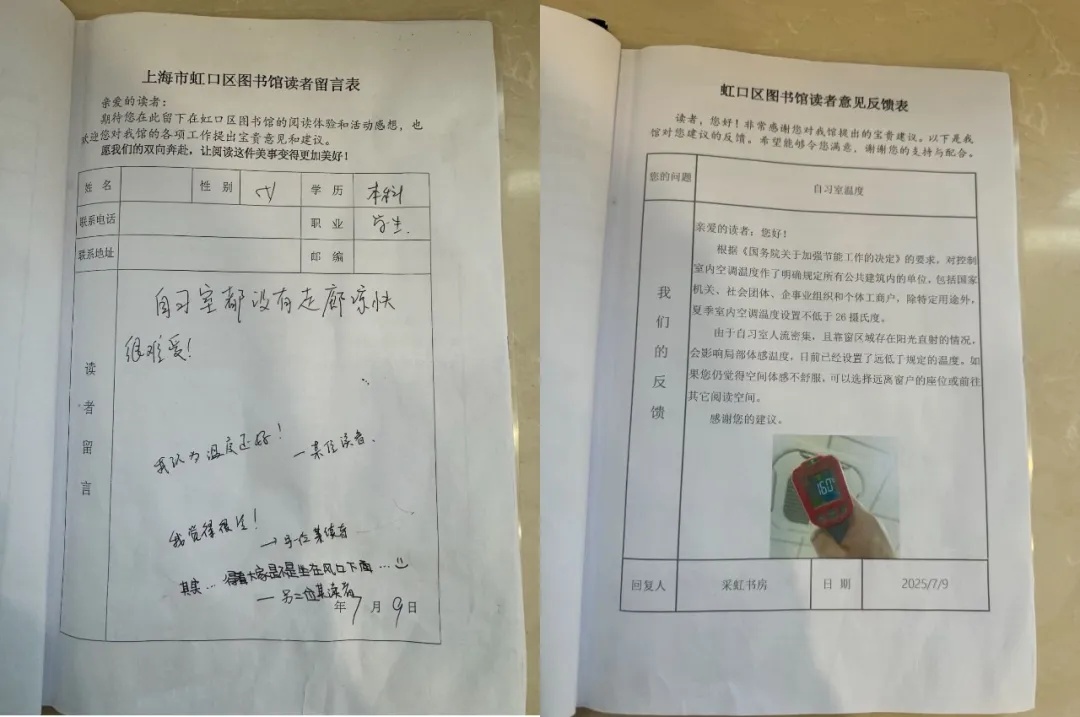 上海市虹口区图书馆读者留言表
亲爱的读者：
期待您在此留下在虹口区图书馆的阅读体验和活动感想，也
欢迎您对我馆的各项工作提出宝贵意见和建议。
愿我们的双向奔赴，让阅读这件美事变得更加美好！
姓 名
性 别
学 历
本科
联系电话
职 业
学生.
联系地址
邮 编
读者留言
自习室都没有走廊凉快
很难受！
我认为温度还好！
—某位读者.
我觉得很
→另一位某读者
其实… 得看大家是不是坐在风口下面…
—另二位某读者
年7月9日
虹口区图书馆读者意见反馈表
读者，您好！非常感谢您对我馆提出的宝贵建议。以下是我
馆对您建议的反馈。希望能够令您满意，谢谢您的支持与配合。
您的问题
自习室温度
我们的反馈
亲爱的读者：您好！
根据《国务院关于加强节能工作的决定》的要求，对控制
室内空调温度作了明确规定所有公共建筑内的单位，包括国家
机关、社会团体、企事业组织和个体工商户，除特定用途外，
夏季室内空调温度设置不低于 26 摄氏度。
由于自习室人流密集，且靠窗区域存在阳光直射的情况，
会影响局部体感温度，目前已经设置了远低于规定的温度。如
果您仍觉得空间体感不舒服，可以选择远离窗户的座位或前往
其它阅读空间。
感谢您的建议。
回复人
采虹书房
日 期
2025/7/9